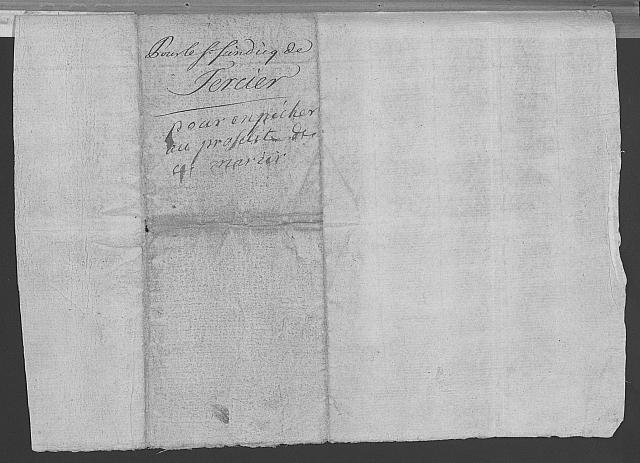 Pour le Sr Sindicq de
Tercier
pour enpecher
au prosélite de
se marier